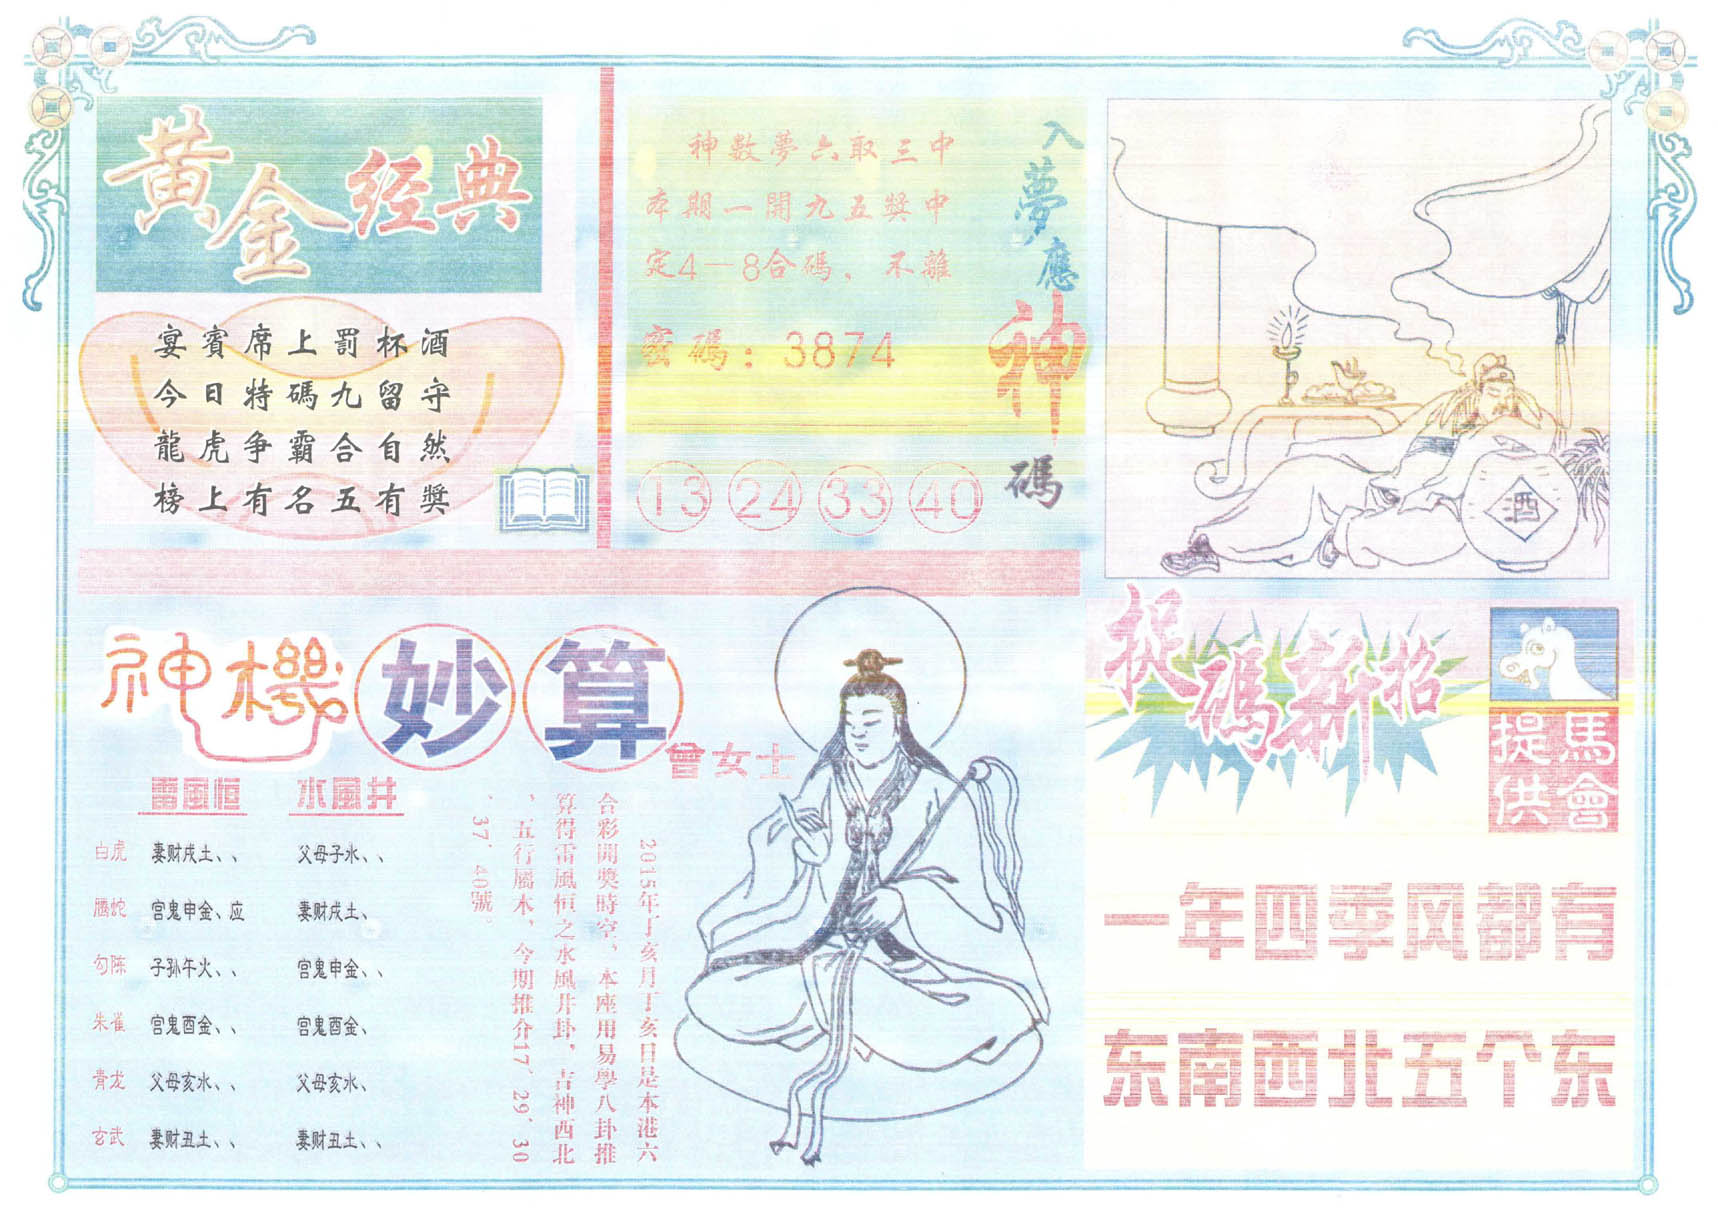 黄金经典
宴賓席上罰杯酒
今日特碼九留守
龍虎争霸合自然
榜上有名五有獎
神數夢六取三中
本期一開九五獎中
定4－8合碼，不離
密碼：3874
13 24 33 40
入夢應神碼
酒
神機妙算
曾女士
雷風恒 水風井
白虎 妻财戌土、、 父母子水、、
螣蛇 官鬼申金、应 妻财戌土、
勾陈 子孙午火、、 官鬼申金、、
朱雀 官鬼酉金、、 官鬼酉金、
青龙 父母亥水、、 父母亥水、
玄武 妻财丑土、、 妻财丑土、、
2015年丁亥月丁亥日是本港六
合彩開獎時空，本座用易學八卦推
算得雷風恒之水風井卦，吉神西北
、五行屬木，今期推介17、29、30
、37、40號。
捉碼新招
馬會提供
一年四季风都有
东南西北五个东